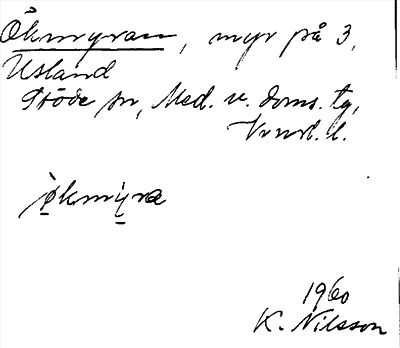 Økmyran, myr på 3,
Usland
Stöde sn, Med. v. doms. tg,
Vnrl. l.
økmyra
1960
K. Nilsson